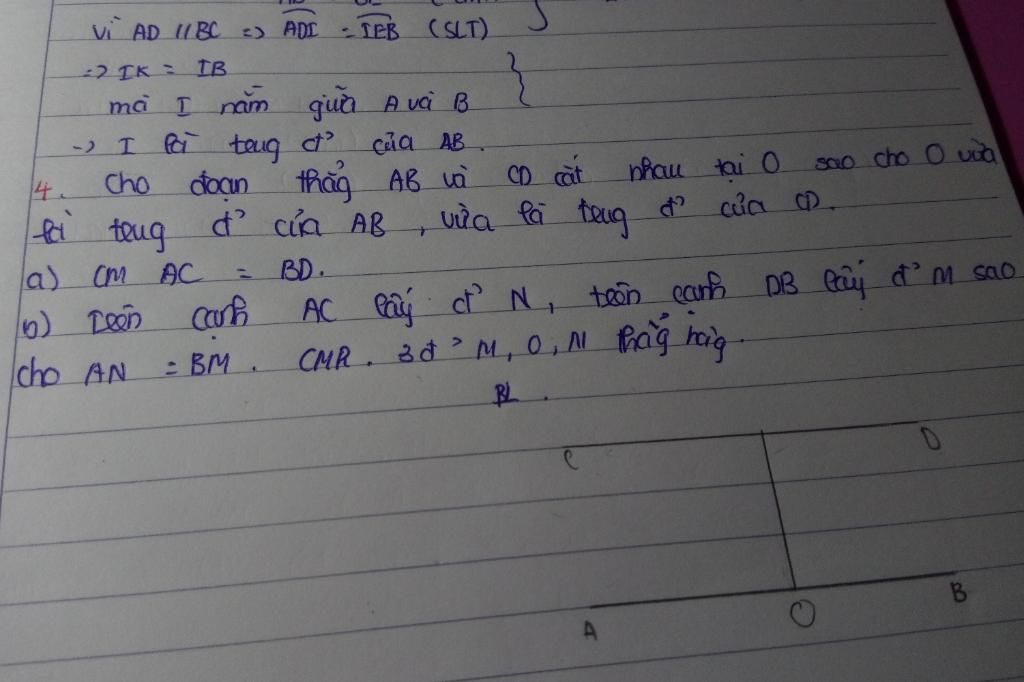 Vì AD // BC => ADI = IEB (SLT)
=> IK = IB
mà I nằm giữa A và B
-> I là trung đ' của AB.
4. Cho đoạn thẳg AB và CD cắt nhau tại O sao cho O vừa
là trung đ' của AB, vừa là trung đ' của CD.
a) CM AC = BD.
b) Trên cạnh AC lấy đ' N, trên cạnh DB lấy đ' M sao
cho AN = BM. CMR. 3 đ' M, O, N thẳg hàg.
BL.
C D
A O B